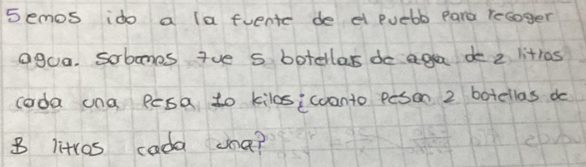 Semos ido a la fuente de el pueblo Para recoger
agua. Sabemos que 5 botellas de agua de 2 litros
cada una Pesa 10 kilos ¿cuanto Pesan 2 botellas de
8 litros cada una?